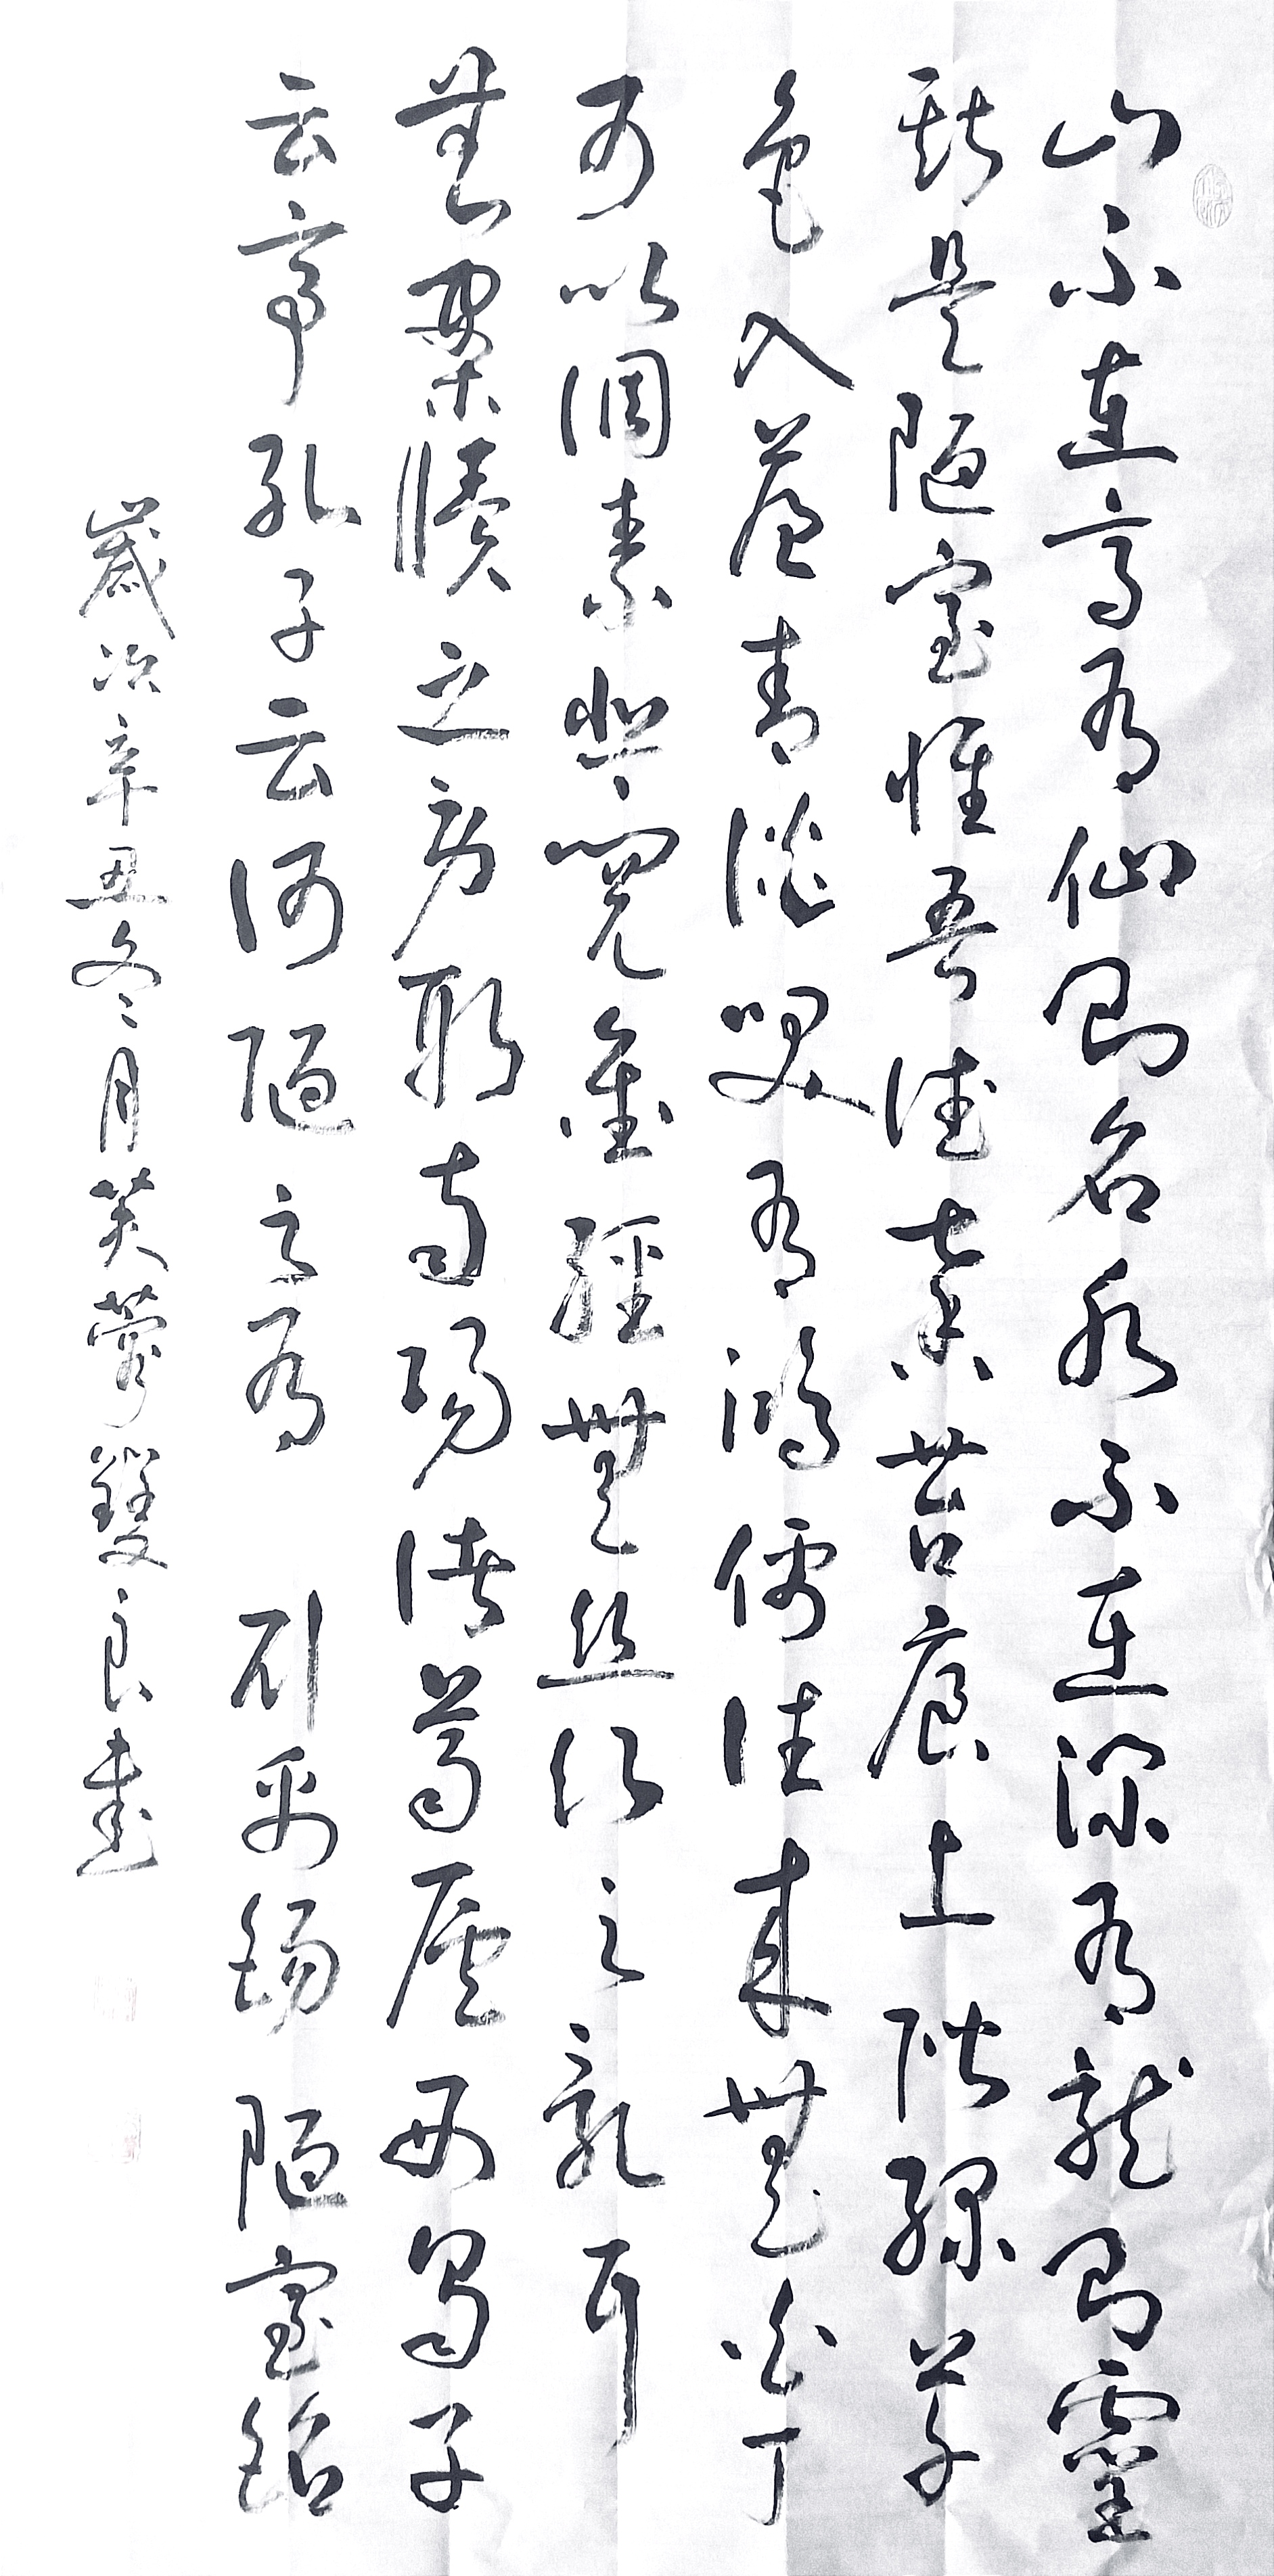 山不在高有仙則名水不在深有龍則靈
斯是陋室惟吾德馨苔痕上階綠草
色入簾青談笑有鴻儒往來無白丁
可以調素琴閱金經無絲竹之亂耳
無案牘之勞形南陽諸葛廬西蜀子
云亭孔子云何陋之有 劉禹錫陋室銘
歲次辛丑冬月芙蓉雙良書